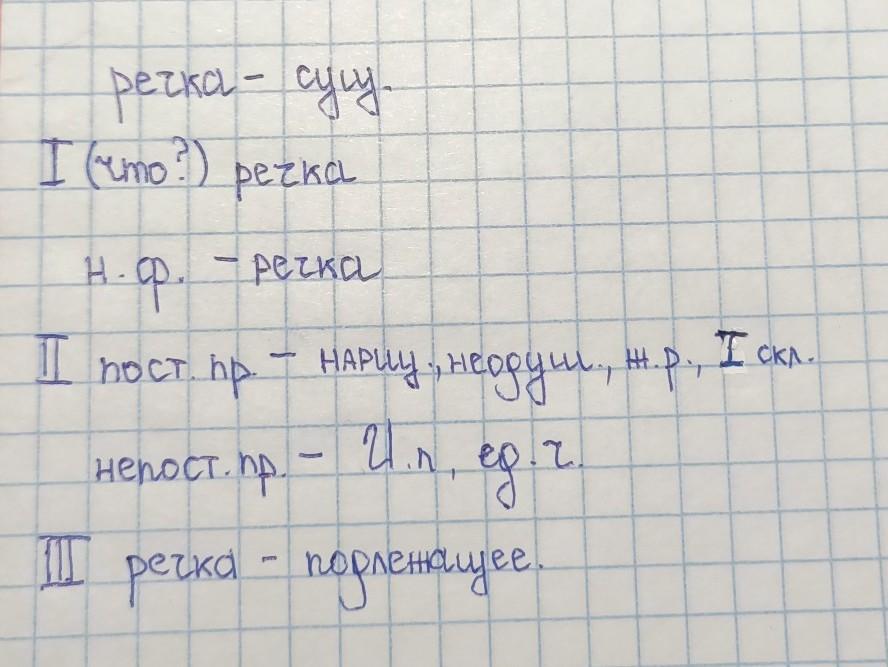 речка – сущ.
I (что?) речка
н.ф. – речка
II пост.пр. – НАРИЦ., неодуш., ж.р., I скл.
непост.пр. – И.п, ед.ч.
III речка – подлежащее.